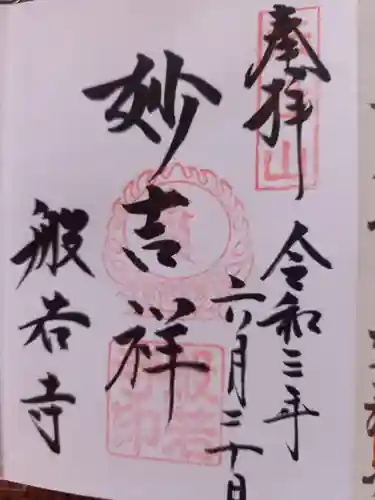 奉拝
令和三年
六月三十日
妙吉祥
般若寺